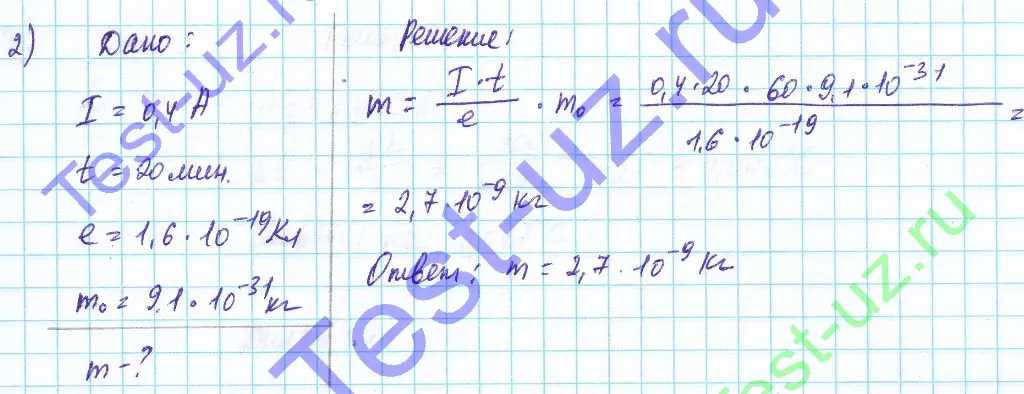 2) Дано:
I = 0,4 А
t = 20 мин.
e = 1,6 · 10⁻¹⁹ Кл
m₀ = 9,1 · 10⁻³¹ кг
m - ?
Решение:
m = I · t / e · m₀ = 0,4 · 20 · 60 · 9,1 · 10⁻³¹ / 1,6 · 10⁻¹⁹ =
= 2,7 · 10⁻⁹ кг
Ответ: m = 2,7 · 10⁻⁹ кг
Test-uz.ru
Test-uz.ru
Test-uz.ru